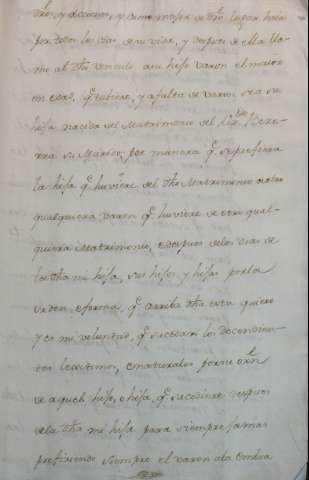 y decimos, y como mejor de dho lugar haia
por todos los dias de su vida, y despues de ella lla-
mo al dho vinculo a su hijo varon el maior
en edad, q. tubiere, y a falta de varon sea su
hija nacida del Matrimonio del liz.do Beze-
rra su Marido, por manera q. se prefiera
la hija q. huviere del dho Matrimonio a otro
qualquiera varon q. huviere de otro qual-
quiera Matrimonio, e despues de los dias de
la dha mi hija, sus hijos y hijas por la
orden, e forma, q. arriba dha esta quiero
y es mi voluntad, q. sucedan los decendien-
tes lexitimos, e naturales por su orn
de aquel hijo, o hija, q. sucediere despues
de la dha mi hija para siempre jamas
prefiriendo siempre el varon a la hembra